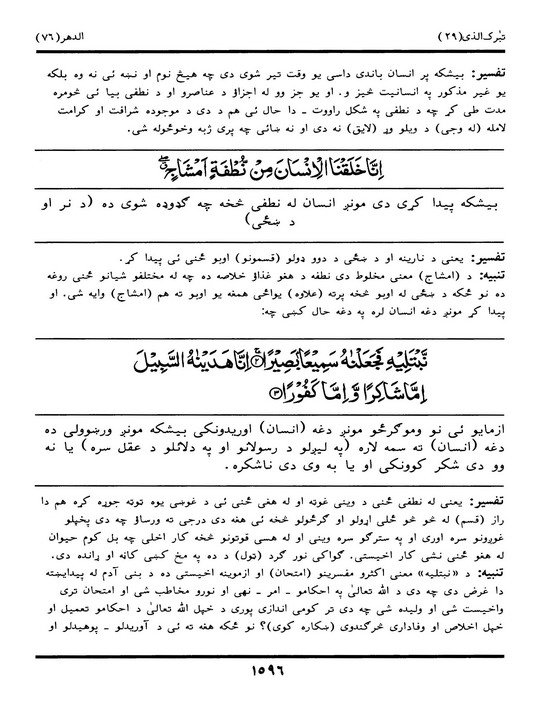 تبٰرك الذی(۲۹) الدهر(۷۶)
تفسیر: بیشکه پر انسان باندی داسی یو وقت تیر شوی دی چه هیڅ نوم او نښه ئی نه وه بلکه
یو غیر مذکور په انسانیت څیز و. او یو جز وو له اجزاؤ د عناصرو او د نطفی بیا ئی څومره
مدت طی کړ چه د نطفی په شکل راووت ـ دا حال ئی هم د دی د موجوده شرافت او کرامت
لامله (له وجی) د ویلو وړ (لایق) نه دی او نه ښائی چه پری ژبه وخوځوله شی.
اِنَّا خَلَقْنَا الْاِنْسَانَ مِنْ نُّطْفَةٍ اَمْشَاجٍ ۖ
بیشکه پیدا کړی دی مونږ انسان له نطفی څخه چه ګډوډه شوی ده (د نر او
د ښځی)
تفسیر: یعنی د نارینه او د ښځی د دوو ډولو (قسمونو) اوبو ځنی ئی پیدا کړ.
تنبیه: د (امشاج) معنی مخلوط دی نطفه د هغو غذاؤ خلاصه ده چه له مختلفو شیانو ځنی روغه
ده نو ځکه د ښځی له اوبو څخه پرته (علاوه) یوائی همغه یو اوبو ته هم (امشاج) وایه شی. او
پیدا کړ مونږ دغه انسان لره په دغه حال کښی چه:
نَّبْتَلِيْهِ فَجَعَلْنٰهُ سَمِيْعًا بَصِيْرًا ② اِنَّا هَدَيْنٰهُ السَّبِيْلَ
اِمَّا شَاكِرًا وَّاِمَّا كَفُوْرًا ③
ازمایو ئی نو وموګرځو مونږ دغه (انسان) اوریدونکی بیشکه مونږ ورښوولی ده
دغه (انسان) ته سمه لاره (په لیږلو د رسولانو او په دلائلو د عقل سره) یا نه
وو دی شکر کوونکی او یا به وی دی ناشکره.
تفسیر: یعنی له نطفی ځنی د وینی غوټه او له هغی ځنی ئی د غوښی یوه ټوټه جوړه کړه هم دا
راز (قسم) له څو څو ځلی اړولو او ګرځولو څخه ئی هغه دی درجی ته ورساؤ چه دی پخپلو
غوږونو سره اوری او په سترګو سره وینی او له هسی قوتونو څخه کار اخلی چه بل کوم حیوان
له هغو ځنی نشی کار اخیستی. ګواکی نور ګرد (ټول) د ده په مخ کښی کاڼه او ړانده دی.
تنبیه: د «نبتلیه» معنی اکثرو مفسرینو (امتحان) او ازموینه اخیستی ده د بنی آدم له پیدایښته
دا غرض دی چه دی د الله تعالیٰ په احکامو ـ امر ـ نهی او نورو مخاطب شی او امتحان تری
واخیست شی او ولیده شی چه دی تر کومی اندازی پوری د خپل الله تعالیٰ د احکامو تعمیل او
خپل اخلاص او وفاداری څرګندوی (ښکاره کوی)؟ نو ځکه هغه ته ئی د آوریدلو ـ پوهیدلو او
۱۵۹۶